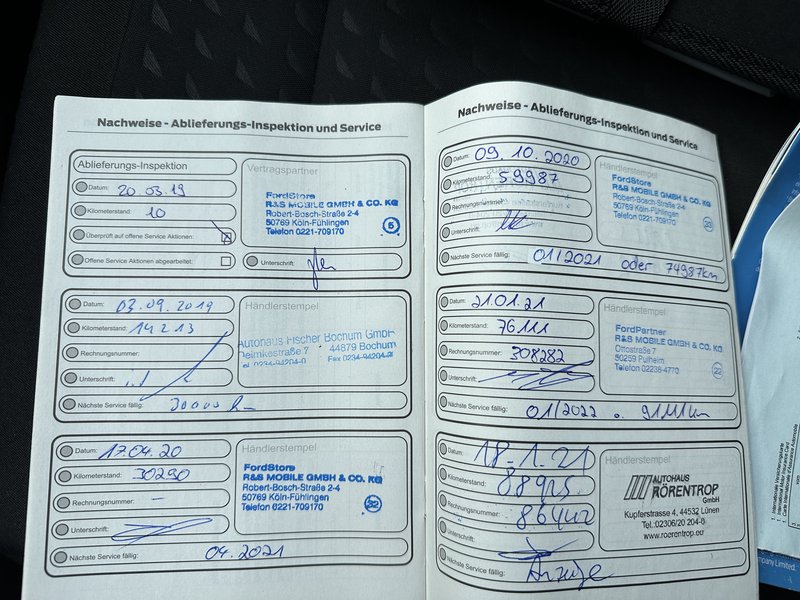 Nachweise - Ablieferungs-Inspektion und Service
Ablieferungs-Inspektion
Datum: 20.03.19
Kilometerstand: 10
Überprüft auf offene Service Aktionen: X
Offene Service Aktionen abgearbeitet:
Vertragspartner
FordStore
R&S MOBILE GMBH & CO. KG
Robert-Bosch-Straße 2-4
50769 Köln-Fühlingen
Telefon 0221-709170
5
Unterschrift:
Datum: 03.09.2019
Kilometerstand: 14213
Rechnungsnummer:
Unterschrift:
Nächste Service fällig: 30000 km
Händlerstempel
Autohaus Fischer Bochum GmbH
44879 Bochum
Datum: 17.04.20
Kilometerstand: 30290
Rechnungsnummer: -
Unterschrift:
Nächste Service fällig: 04.2021
Händlerstempel
FordStore
R&S MOBILE GMBH & CO. KG
Robert-Bosch-Straße 2-4
50769 Köln-Fühlingen
Telefon 0221-709170
Nachweise - Ablieferungs-Inspektion und Service
Datum: 09.10.2020
Kilometerstand: 59987
Rechnungsnummer:
Unterschrift:
Nächste Service fällig: 01/2021 oder 74987km
Händlerstempel
FordStore
R&S MOBILE GMBH & CO. KG
Robert-Bosch-Straße 2-4
50769 Köln-Fühlingen
Telefon 0221-709170
Datum: 21.01.21
Kilometerstand: 76111
Rechnungsnummer: 308282
Unterschrift:
Nächste Service fällig: 01/2022 o. 91111km
Händlerstempel
FordPartner
R&S MOBILE GMBH & CO. KG
Ottostraße 7
50259 Pulheim
Telefon 02238-4770
22
Datum: 18-1.21
Kilometerstand: 88925
Rechnungsnummer:
Unterschrift:
Nächste Service fällig: Anzeige
Händlerstempel
AUTOHAUS
RÖRENTROP
GmbH
Kupferstrasse 4, 44532 Lünen
Tel.:02306/20 204-0
www.roerentrop.eu